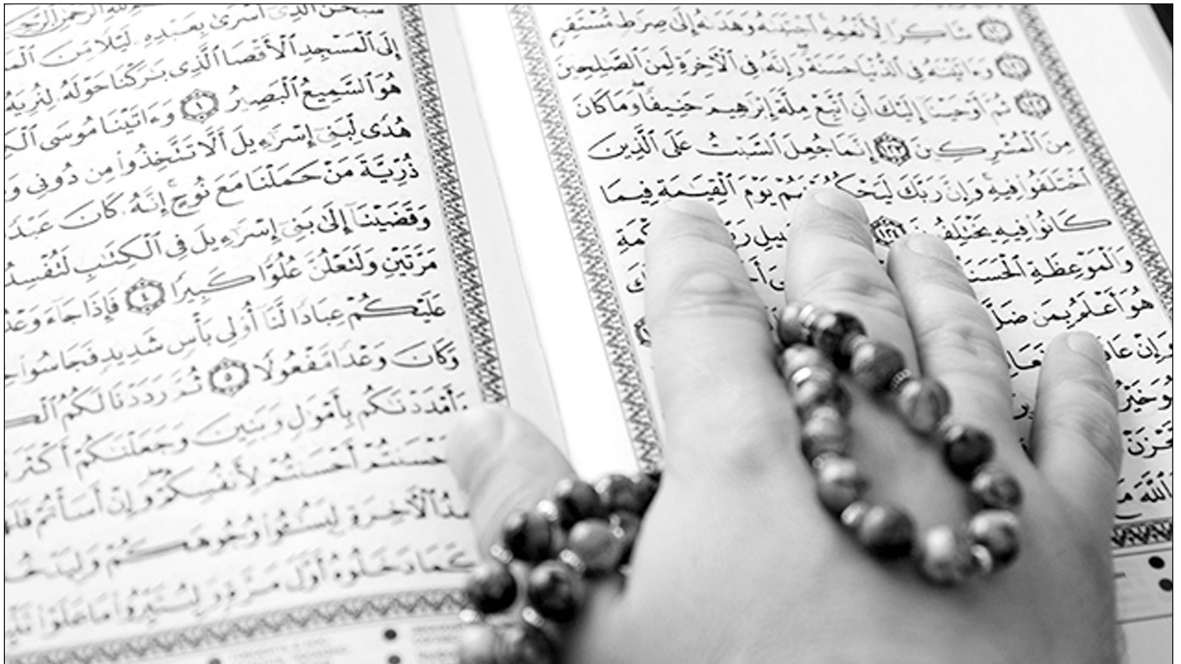 ۝١٢٠ شَاكِرًا لِّأَنْعُمِهِ ٱجْتَبَىٰهُ وَهَدَىٰهُ إِلَىٰ صِرَٰطٍ مُّسْتَقِيمٍ
۝١٢١ وَءَاتَيْنَٰهُ فِي ٱلدُّنْيَا حَسَنَةً وَإِنَّهُۥ فِي ٱلْءَاخِرَةِ لَمِنَ ٱلصَّٰلِحِينَ
۝١٢٢ ثُمَّ أَوْحَيْنَآ إِلَيْكَ أَنِ ٱتَّبِعْ مِلَّةَ إِبْرَٰهِيمَ حَنِيفًا وَمَا كَانَ
مِنَ ٱلْمُشْرِكِينَ ۝١٢٣ إِنَّمَا جُعِلَ ٱلسَّبْتُ عَلَى ٱلَّذِينَ
ٱخْتَلَفُوا۟ فِيهِ وَإِنَّ رَبَّكَ لَيَحْكُمُ بَيْنَهُمْ يَوْمَ ٱلْقِيَٰمَةِ فِيمَا
كَانُوا۟ فِيهِ يَخْتَلِفُونَ ۝١٢٤
وَٱلْمَوْعِظَةِ ٱلْحَسَنَةِ
هُوَ أَعْلَمُ بِمَن ضَلَّ
وَإِنْ
سُبْحَٰنَ ٱلَّذِىٓ أَسْرَىٰ بِعَبْدِهِۦ لَيْلًا مِّنَ
إِلَى ٱلْمَسْجِدِ ٱلْأَقْصَا ٱلَّذِى بَٰرَكْنَا حَوْلَهُۥ لِنُرِيَهُۥ
هُوَ ٱلسَّمِيعُ ٱلْبَصِيرُ ۝١ وَءَاتَيْنَا مُوسَى
هُدًى لِّبَنِىٓ إِسْرَٰٓءِيلَ أَلَّا تَتَّخِذُوا۟ مِن دُونِى
ذُرِّيَّةَ مَنْ حَمَلْنَا مَعَ نُوحٍ إِنَّهُۥ كَانَ عَبْدًا
وَقَضَيْنَآ إِلَىٰ بَنِىٓ إِسْرَٰٓءِيلَ فِى ٱلْكِتَٰبِ لَتُفْسِدُ
مَرَّتَيْنِ وَلَتَعْلُنَّ عُلُوًّا كَبِيرًا ۝٤ فَإِذَا جَآءَ وَعْدُ
عَلَيْكُمْ عِبَادًا لَّنَآ أُو۟لِى بَأْسٍ شَدِيدٍ فَجَاسُوا۟
وَكَانَ وَعْدًا مَّفْعُولًا ۝٥ ثُمَّ رَدَدْنَا لَكُمُ
وَأَمْدَدْنَٰكُم بِأَمْوَٰلٍ وَبَنِينَ وَجَعَلْنَٰكُمْ أَكْثَرَ
أَحْسَنتُمْ أَحْسَنتُمْ لِأَنفُسِكُمْ وَإِنْ أَسَأْتُمْ فَلَهَا
ٱلْءَاخِرَةِ لِيَسُۥٓـُٔوا۟ وُجُوهَكُمْ
كَمَا دَخَلُوهُ أَوَّلَ مَرَّةٍ وَلِيُتَبِّرُوا۟ مَا عَلَوْا۟